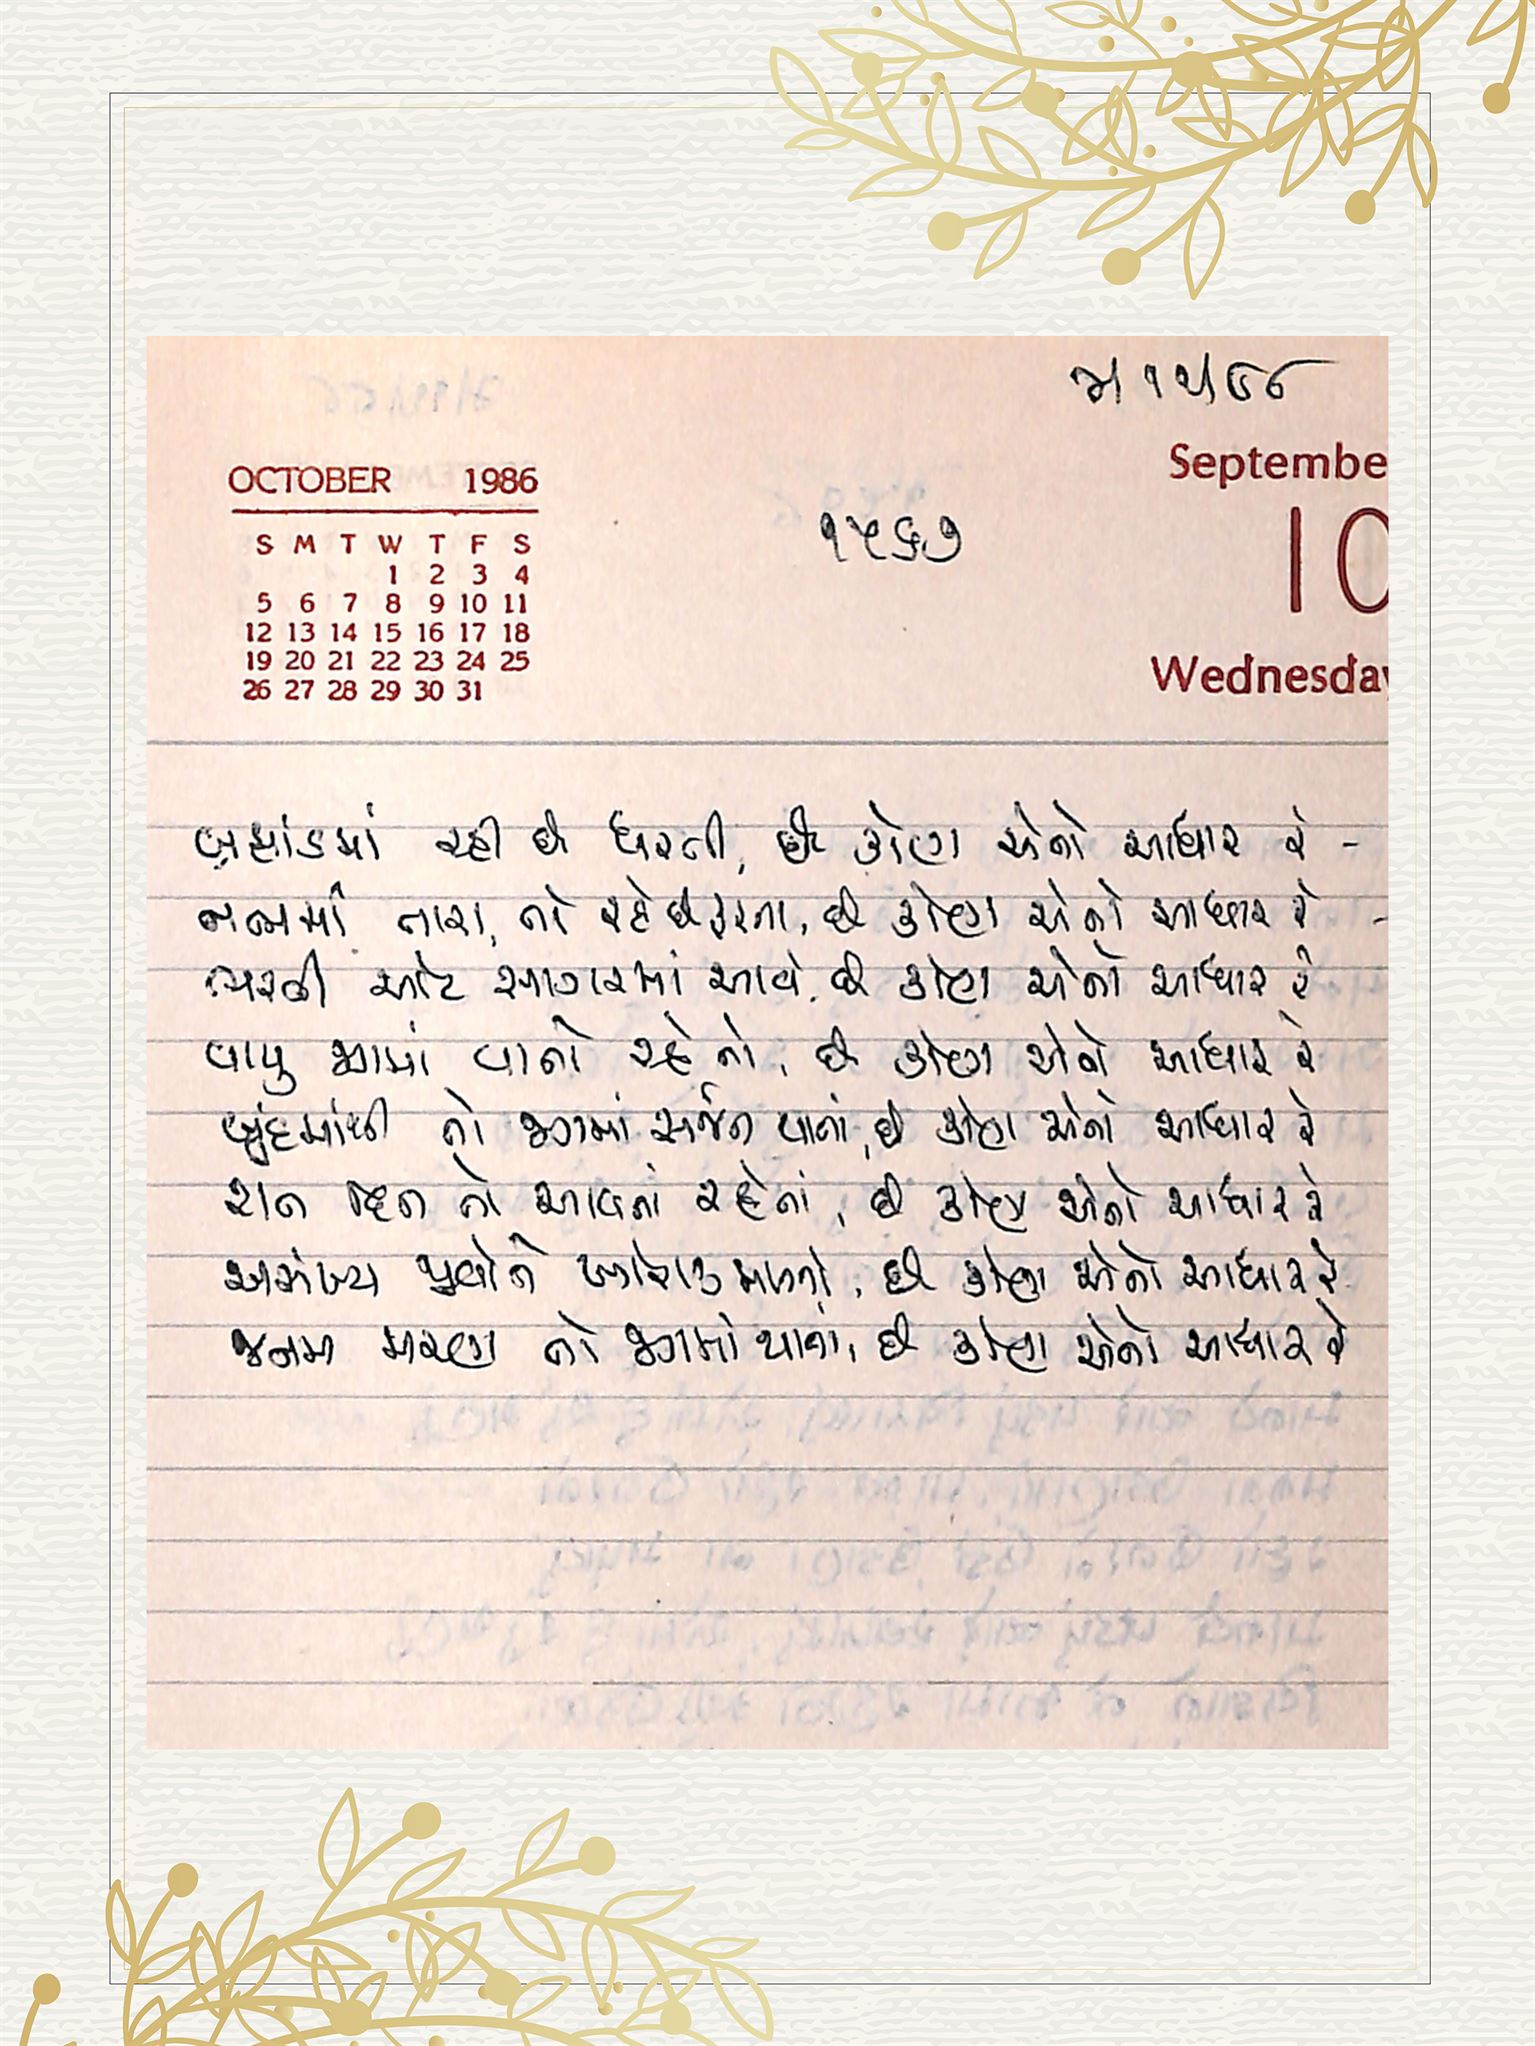 OCTOBER 1986
S M T W T F S
1 2 3 4
5 6 7 8 9 10 11
12 13 14 15 16 17 18
19 20 21 22 23 24 25
26 27 28 29 30 31
૧૫૬૭
Septembe
10
Wednesday
બ્રહ્માંડમાં રહી છે ધરતી, છે કોણ એનો આધાર રે -
નભમાં તારા, તો રહે છે ફરતા, છે કોણ એનો આધાર રે -
ભરતી ઓટ સાગરમાં આવે, છે કોણ એનો આધાર રે
વાયુ જગમાં વાતો રહેતો, છે કોણ એનો આધાર રે
બુંદમાંથી તો જગમાં સર્જન થાતાં, છે કોણ એનો આધાર રે
રાત દિન તો આવતાં રહેતાં, છે કોણ એનો આધાર રે
અસંખ્ય જીવોને ખોરાક મળતો, છે કોણ એનો આધાર રે
જનમ મરણ તો જગમાં થાતાં, છે કોણ એનો આધાર રે